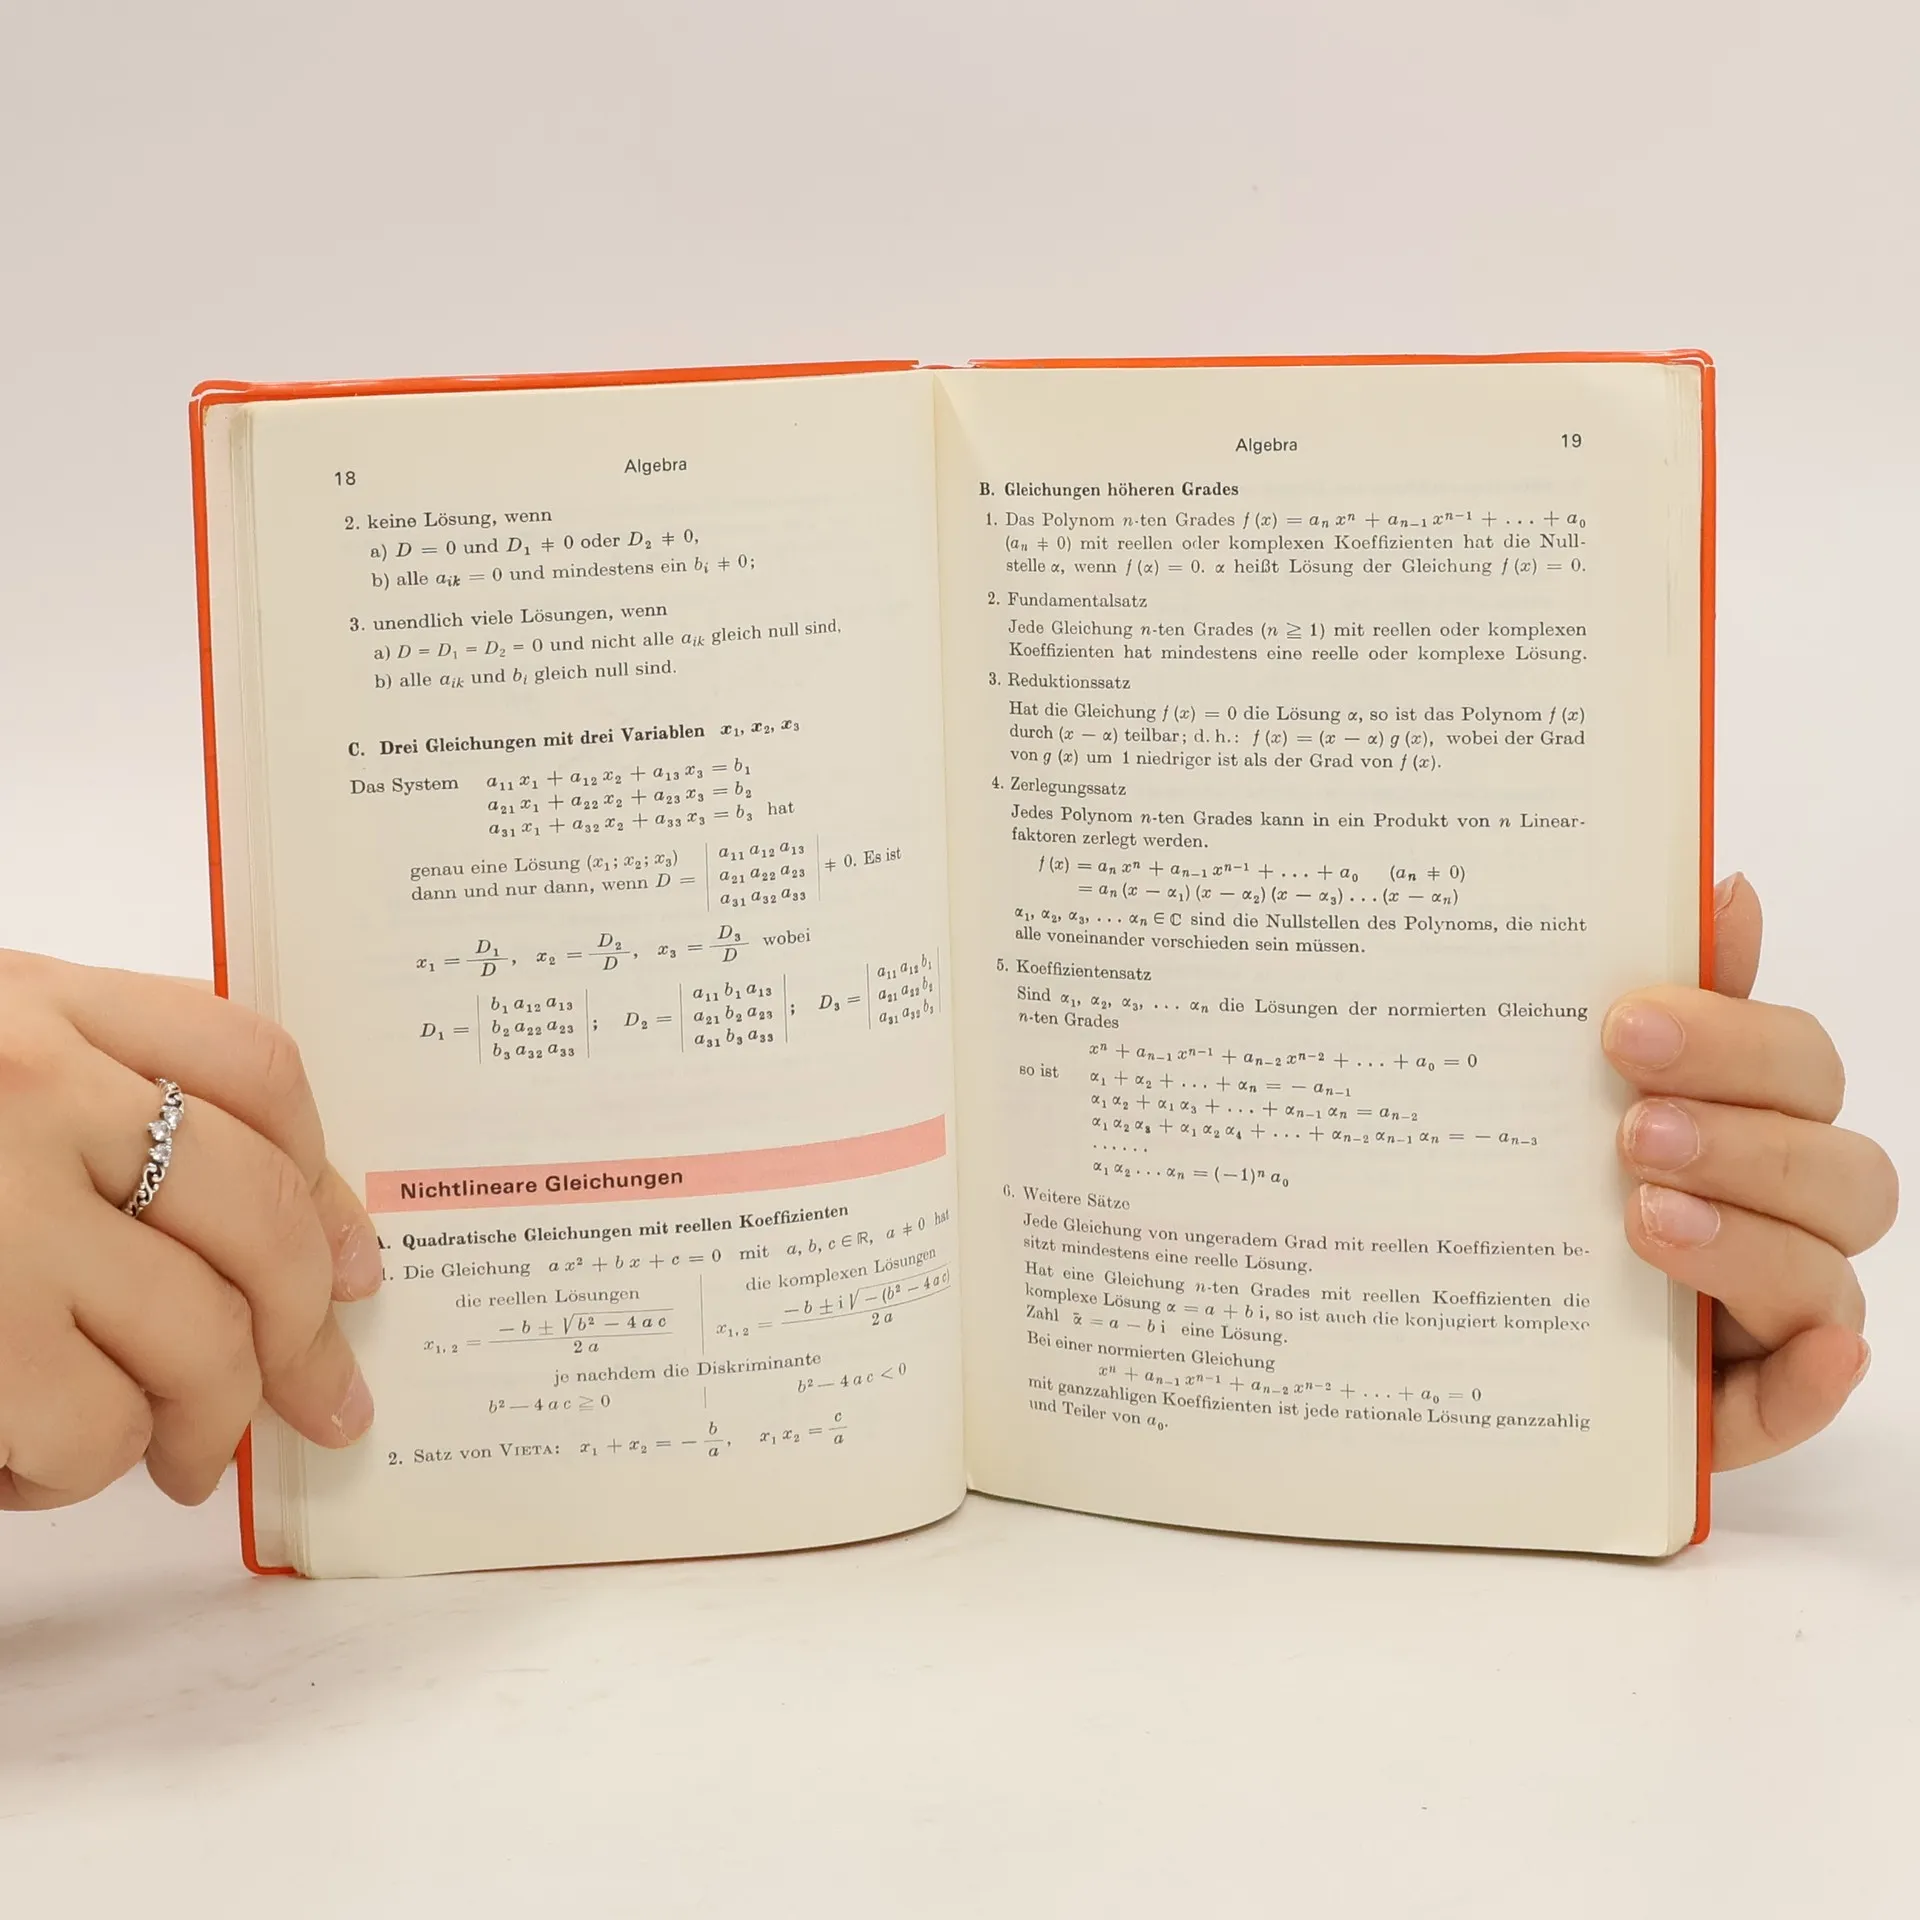 18
Algebra
2. keine Lösung, wenn
a) D = 0 und D₁ ≠ 0 oder D₂ ≠ 0,
b) alle aᵢₖ = 0 und mindestens ein bᵢ ≠ 0;
3. unendlich viele Lösungen, wenn
a) D = D₁ = D₂ = 0 und nicht alle aᵢₖ gleich null sind,
b) alle aᵢₖ und bᵢ gleich null sind.
C. Drei Gleichungen mit drei Variablen x₁, x₂, x₃
Das System a₁₁ x₁ + a₁₂ x₂ + a₁₃ x₃ = b₁
a₂₁ x₁ + a₂₂ x₂ + a₂₃ x₃ = b₂
a₃₁ x₁ + a₃₂ x₂ + a₃₃ x₃ = b₃ hat
genau eine Lösung (x₁; x₂; x₃)
dann und nur dann, wenn D = | a₁₁ a₁₂ a₁₃
a₂₁ a₂₂ a₂₃
a₃₁ a₃₂ a₃₃ | ≠ 0. Es ist
x₁ = D₁/D, x₂ = D₂/D, x₃ = D₃/D wobei
D₁ = | b₁ a₁₂ a₁₃
b₂ a₂₂ a₂₃
b₃ a₃₂ a₃₃ |; D₂ = | a₁₁ b₁ a₁₃
a₂₁ b₂ a₂₃
a₃₁ b₃ a₃₃ |; D₃ = | a₁₁ a₁₂ b₁
a₂₁ a₂₂ b₂
a₃₁ a₃₂ b₃ |
Nichtlineare Gleichungen
A. Quadratische Gleichungen mit reellen Koeffizienten
1. Die Gleichung a x² + b x + c = 0 mit a, b, c ∈ ℝ, a ≠ 0 hat
die reellen Lösungen | die komplexen Lösungen
x₁,₂ = (− b ± √(b² − 4 a c)) / 2 a | x₁,₂ = (− b ± i √(− (b² − 4 a c))) / 2 a
je nachdem die Diskriminante
b² − 4 a c ≧ 0 | b² − 4 a c < 0
2. Satz von VIETA: x₁ + x₂ = − b/a, x₁ x₂ = c/a
Algebra
19
B. Gleichungen höheren Grades
1. Das Polynom n-ten Grades f (x) = aₙ xⁿ + aₙ₋₁ xⁿ⁻¹ + . . . + a₀
(aₙ ≠ 0) mit reellen oder komplexen Koeffizienten hat die Null-
stelle α, wenn f (α) = 0. α heißt Lösung der Gleichung f (x) = 0.
2. Fundamentalsatz
Jede Gleichung n-ten Grades (n ≧ 1) mit reellen oder komplexen
Koeffizienten hat mindestens eine reelle oder komplexe Lösung.
3. Reduktionssatz
Hat die Gleichung f (x) = 0 die Lösung α, so ist das Polynom f (x)
durch (x − α) teilbar; d. h.: f (x) = (x − α) g (x), wobei der Grad
von g (x) um 1 niedriger ist als der Grad von f (x).
4. Zerlegungssatz
Jedes Polynom n-ten Grades kann in ein Produkt von n Linear-
faktoren zerlegt werden.
f (x) = aₙ xⁿ + aₙ₋₁ xⁿ⁻¹ + . . . + a₀ (aₙ ≠ 0)
= aₙ (x − α₁) (x − α₂) (x − α₃) . . . (x − αₙ)
α₁, α₂, α₃, . . . αₙ ∈ ℂ sind die Nullstellen des Polynoms, die nicht
alle voneinander verschieden sein müssen.
5. Koeffizientensatz
Sind α₁, α₂, α₃, . . . αₙ die Lösungen der normierten Gleichung
n-ten Grades
xⁿ + aₙ₋₁ xⁿ⁻¹ + aₙ₋₂ xⁿ⁻² + . . . + a₀ = 0
so ist α₁ + α₂ + . . . + αₙ = − aₙ₋₁
α₁ α₂ + α₁ α₃ + . . . + αₙ₋₁ αₙ = aₙ₋₂
α₁ α₂ α₃ + α₁ α₂ α₄ + . . . + αₙ₋₂ αₙ₋₁ αₙ = − aₙ₋₃
. . . . . .
α₁ α₂ . . . αₙ = (−1)ⁿ a₀
6. Weitere Sätze
Jede Gleichung von ungeradem Grad mit reellen Koeffizienten be-
sitzt mindestens eine reelle Lösung.
Hat eine Gleichung n-ten Grades mit reellen Koeffizienten die
komplexe Lösung α = a + b i, so ist auch die konjugiert komplexe
Zahl ᾱ = a − b i eine Lösung.
Bei einer normierten Gleichung
xⁿ + aₙ₋₁ xⁿ⁻¹ + aₙ₋₂ xⁿ⁻² + . . . + a₀ = 0
mit ganzzahligen Koeffizienten ist jede rationale Lösung ganzzahlig
und Teiler von a₀.